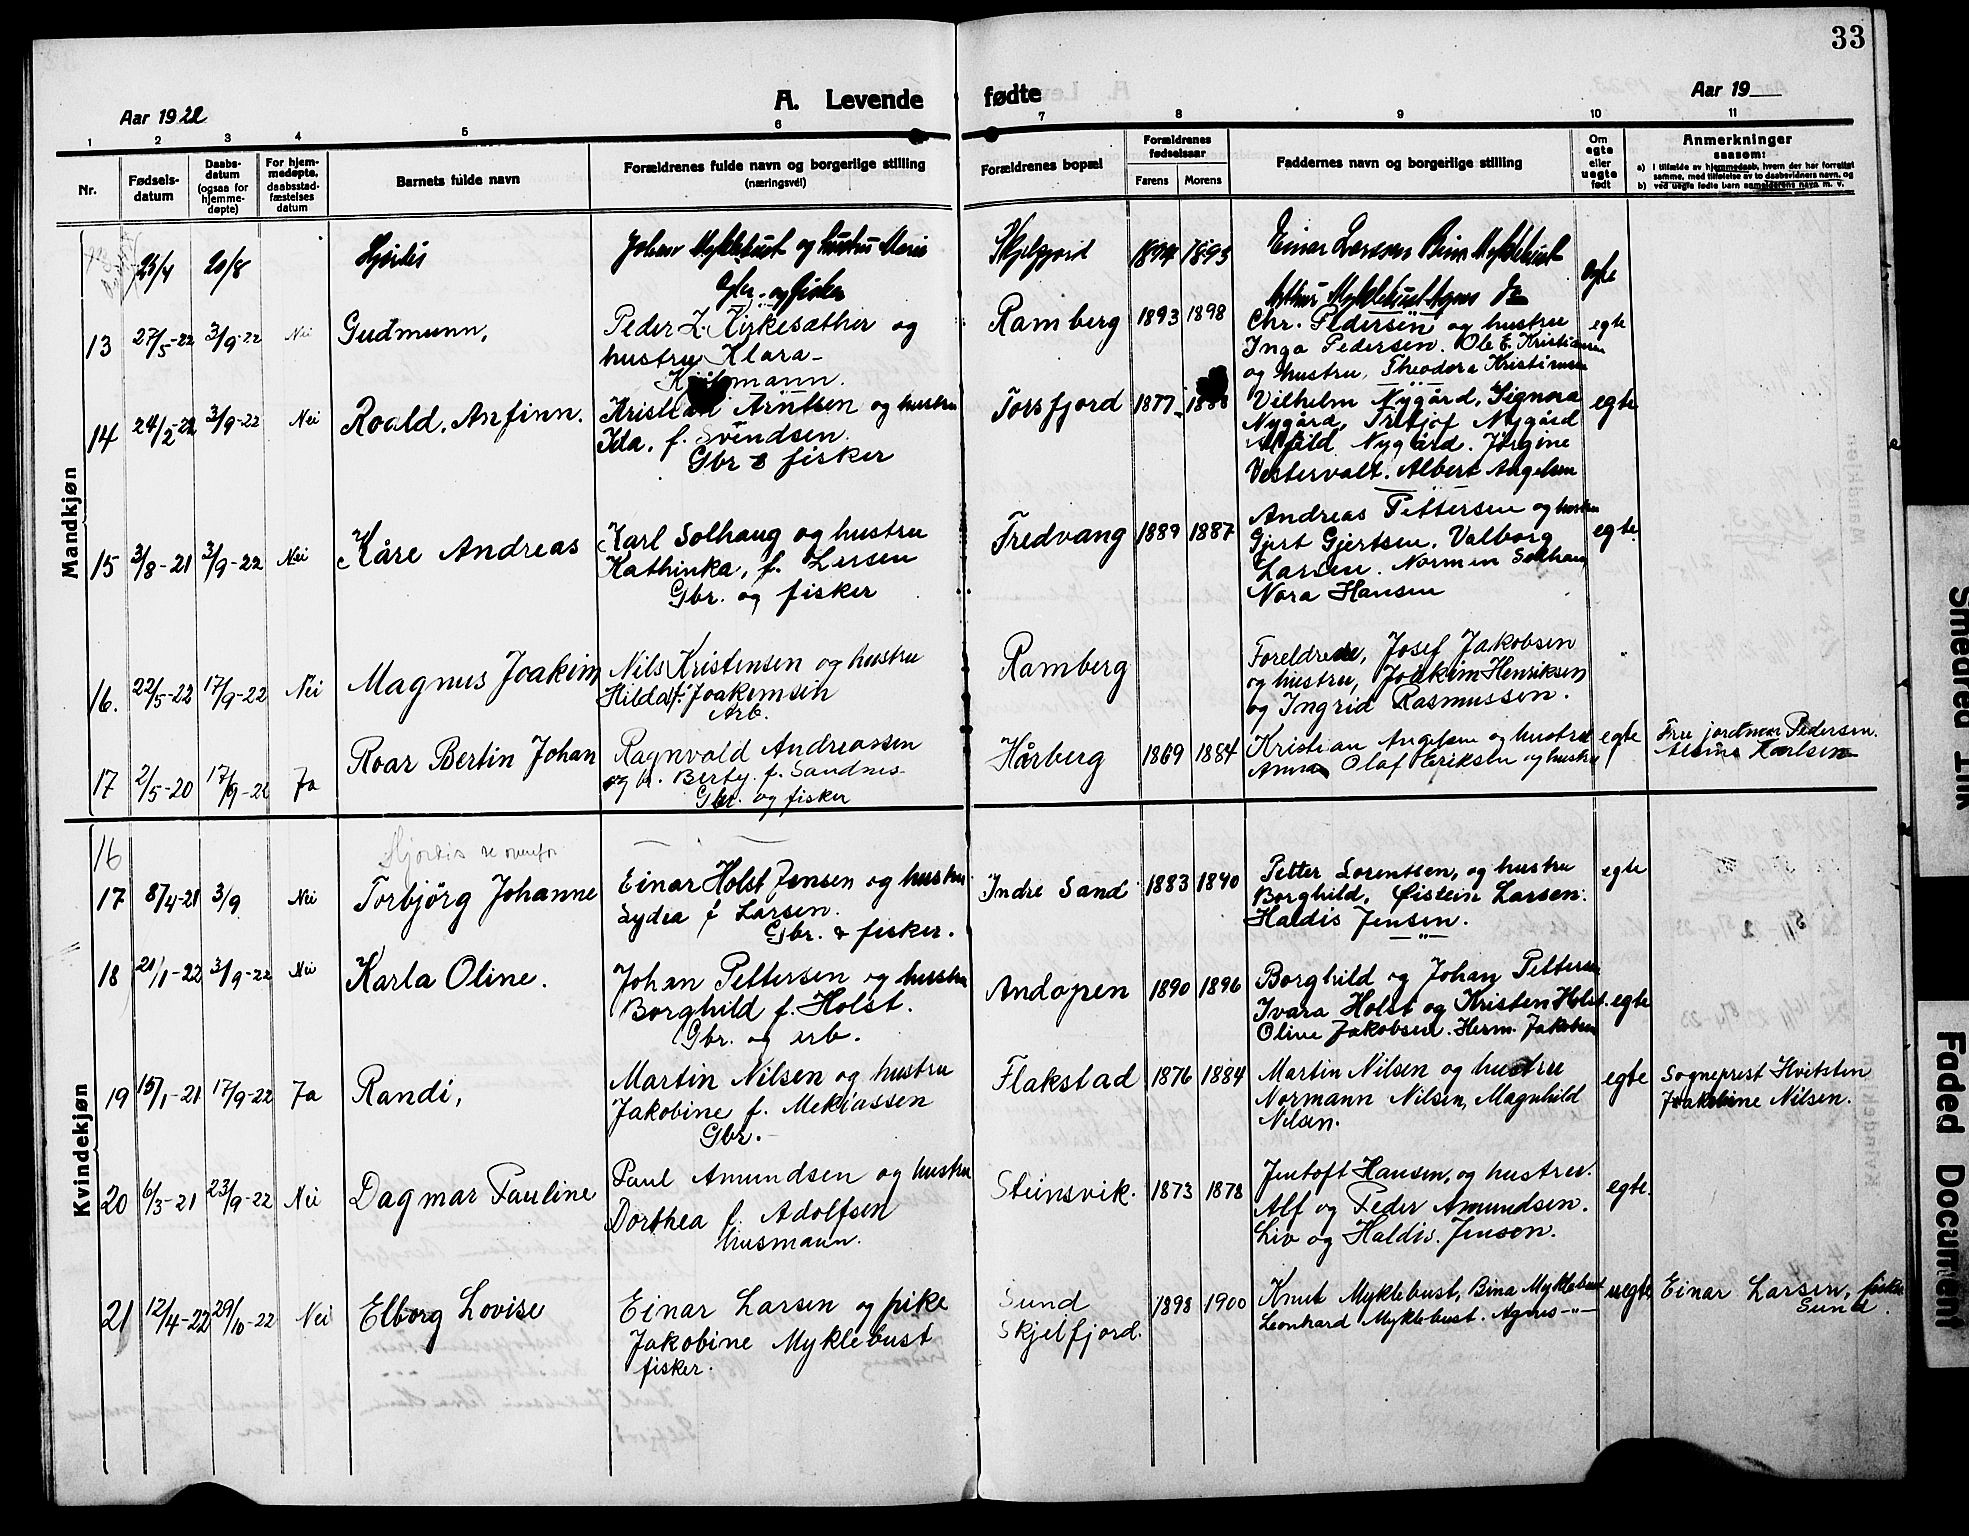 33
Aar 1922
A. Levende fødte
Aar 19
1 2 3 4 5 6 7 8 9 10 11
Nr.
Fødsels-
datum
Daabs-
datum
(ogsaa for
hjemme-
døpte)
For hjem-
medøpte,
daabsstad-
fæstelses
datum
Barnets fulde navn
Forældrenes fulde navn og borgerlige stilling
(næringsvei)
Forældrenes bopæl
Forældrenes
fødselsaar
Farens Morens
Faddernes navn og borgerlige stilling
Om
egte
eller
uegte
født
Anmerkninger
saasom:
a) i tilfælde av hjemmedaab, hvem der har forrettet
samme, med tilføielse av to daabsvidners navn, og
b) ved uegte fødte barn anmelderens navn m. v.
Mandkjøn
25/4 20/8 Hjørdis Johan Myklebust og hustru Maria Skjelfjord 1894 1895 Einar Larsen Bina Myklebust egte
Gbr. og fisker Arthur Myklebust Agnes Do
13 27/5-22 3/9-22 Nei Gudmunn, Peder Z. Kirkesæther og Ramberg 1893 1898 Chr. Pedersen og hustru egte
hustru Klara Inga Pedersen. Ole E. Kristiansen
og hustru, Theodora Kristiansen
14 24/2-22 3/9-22 Nei Roald. Anfinn. Kristian Arntsen og hustru Torsfjord 1877 1888 Vilhelm Nygård, Signora egte
Ida, f. Svendsen. Nygård, Fritjof Nygård
Gbr & fisker Nygård. Jørgine
Vestervalt. Albert Angelsen
15 3/8-21 3/9-22 Nei Kåre Andreas Karl Solhaug og hustru Fredvang 1889 1887 Andreas Pettersen og hustru egte.
Kathinka, f. Larsen Gjert Gjertsen, Valborg
Gbr. og fisker Larsen. Normen Solhaug
Nora Hansen
16. 22/5-22 17/9-22 Nei Magnus Joakim Nils Kristensen og hustru Ramberg Foreldrene, Josef Jakobsen "
Hilda f. Joakimsen og hustru, Joakim Henriksen
Arb. og Ingrid Rasmussen.
17 2/5-20 17/9-22 Ja Roar Bertin Johan Ragnvald Andreassen Hårberg 1869 1884 Kristian Angelsen og hustru egte Fru jordmor Pedersen.
og h. Berty f. Sandnes Anna Olaf Eriksen og hustru Karlsen
Gbr. og fisker
Kvindekjøn
16 Hjørdis se ovenfor
17 8/4-21 3/9 Nei Torbjørg Johanne Einar Holst Jensen og hustru Indre Sand 1883 1890 Petter Lorentsen, og hustru egte
Lydia f Larsen. Borghild, Øistein Larsen.
Gbr. & fisker. Haldis Jensen.
18 21/1-22 3/9-22 Nei Karla Oline. Johan Pettersen og hustru Andopen 1890 1896 Borghild og Johan Pettersen egte
Borghild f. Holst. Ivara Holst og Kristen Holst.
Gbr. og arb. Oline Jakobsen. Herm. Jakobsen
19 15/1-21 17/9-22 Ja Randi, Martin Nilsen og hustru Flakstad 1876 1884 Martin Nilsen og hustru egte Sogneprest Hvitsten
Jakobine f. Mekiassen Normann Nilsen, Magnhild Jakobine Nilsen.
Gbr. Nilsen.
20 6/3-21 23/9-22 Nei Dagmar Pauline Paul Amundsen og hustru Steinsvik. 1873 1878 Jentoft Hansen, og hustru. egte.
Dorthea f. Adolfsen Alf og Peder Amundsen.
husmann. Liv og Haldis. Jensen.
21 12/4-22 29/10-22 Nei Elborg Lovise Einar Larsen og pike Sund 1898 1900 Knut Myklebust, Bina Myklebust uegte Einar Larsen, fisker
Jakobine Myklebust Skjelfjord. Leonhard Myklebust. Agnes -"- Sund.
fisker.
Smedred Ink
Faded Document